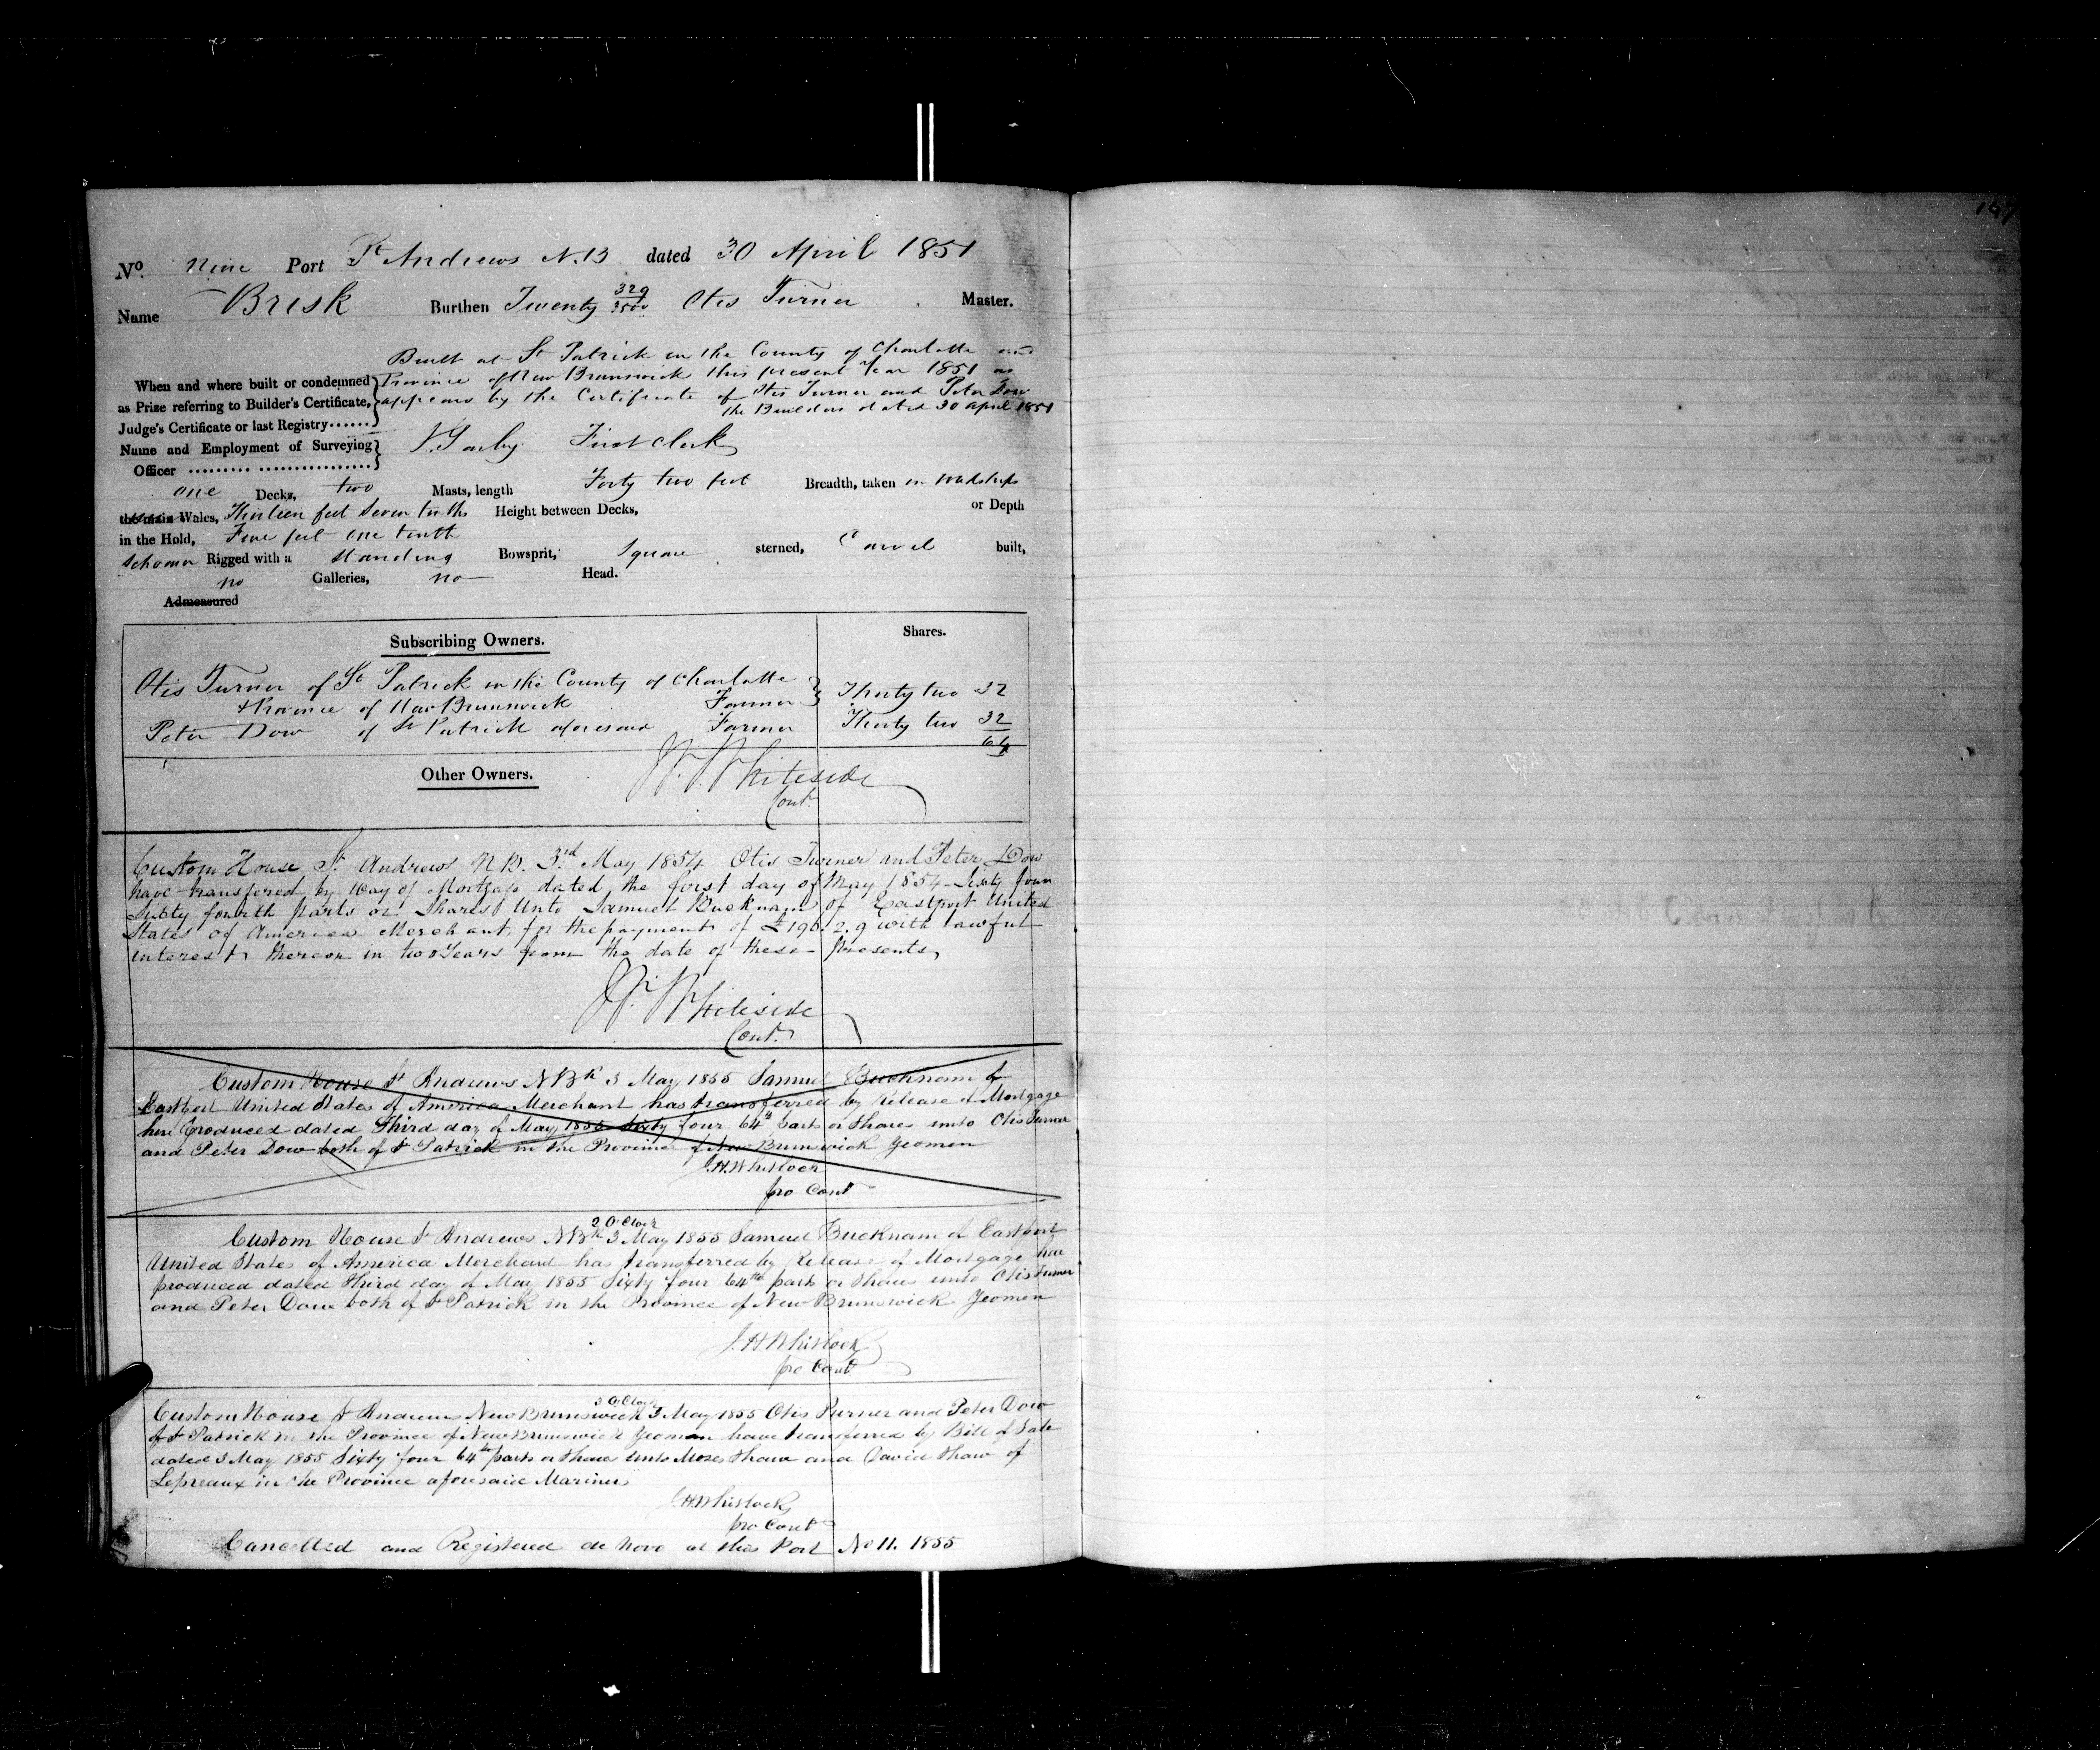 No. Nine Port St Andrews N.B dated 30 April 1851
Name Brisk Burthen Twenty 329/3500 Otis Turner Master.
Built at St Patrick in the County of Charlotte and
When and where built or condemned Province of New Brunswick this present Year 1851 as
as Prize referring to Builder's Certificate, appears by the Certificate of Otis Turner and Peter Dow
Judge's Certificate or last Registry...... the Builders dated 30 April 1851
Name and Employment of Surveying First Clerk
Officer
one Decks, two Masts, length Forty two feet Breadth, taken in Midships
the main Wales, Thirteen feet Seven tenths Height between Decks, or Depth
in the Hold, Five feet one tenth
Schooner Rigged with a Standing Bowsprit, Square sterned, Carvel built,
no Galleries, no Head.
Admeasured
Subscribing Owners. Shares.
Otis Turner of St Patrick in the County of Charlotte
& Province of New Brunswick Farmer Thirty two 32
Peter Dow of St Patrick aforesaid Farmer Thirty two 32
64
Other Owners. Whiteside
Cont.
Custom House St Andrews N.B. 3rd May 1854 Otis Turner and Peter Dow
have transfered by Way of Mortgage dated the first day of May 1854 Sixty four
Sixty fourth parts or Shares Unto Samuel Bucknam of Eastport United
States of America Merchant, for the payment of £196.2.9 with lawful
interest thereon in two Years from the date of these presents,
Whiteside
Cont.
Custom House St Andrews NBk 3 May 1855 Samuel Bucknam of
Eastport United States of America Merchant has transferred by Release of Mortgage
here produced dated Third day of May 1855 Sixty four 64th parts or Shares unto Otis Turner
and Peter Dow both of St Patrick in the Province of New Brunswick Yeomen
J.H. Whitlock
pro Cont
2 O'Clock
Custom House St Andrews NBk 3 May 1855 Samuel Bucknam of Eastport
United States of America Merchant has transferred by Release of Mortgage here
produced dated third day of May 1855 Sixty four 64th parts or Shares unto Otis Turner
and Peter Dow both of St Patrick in the Province of New Brunswick Yeomen
J.H. Whitlock
pro Cont
3 O'Clock
Custom House St Andrews New Brunswick 3 May 1855 Otis Turner and Peter Dow
of St Patrick in the Province of New Brunswick Yeomen have transferred by Bill of Sale
dated 3 May 1855 Sixty four 64th parts or Shares unto Moses Shaw and David Shaw of
Lepreaux in the Province aforesaid Mariners
J.H. Whitlock
pro Cont
Cancelled and Registered de novo at this Port No 11. 1855